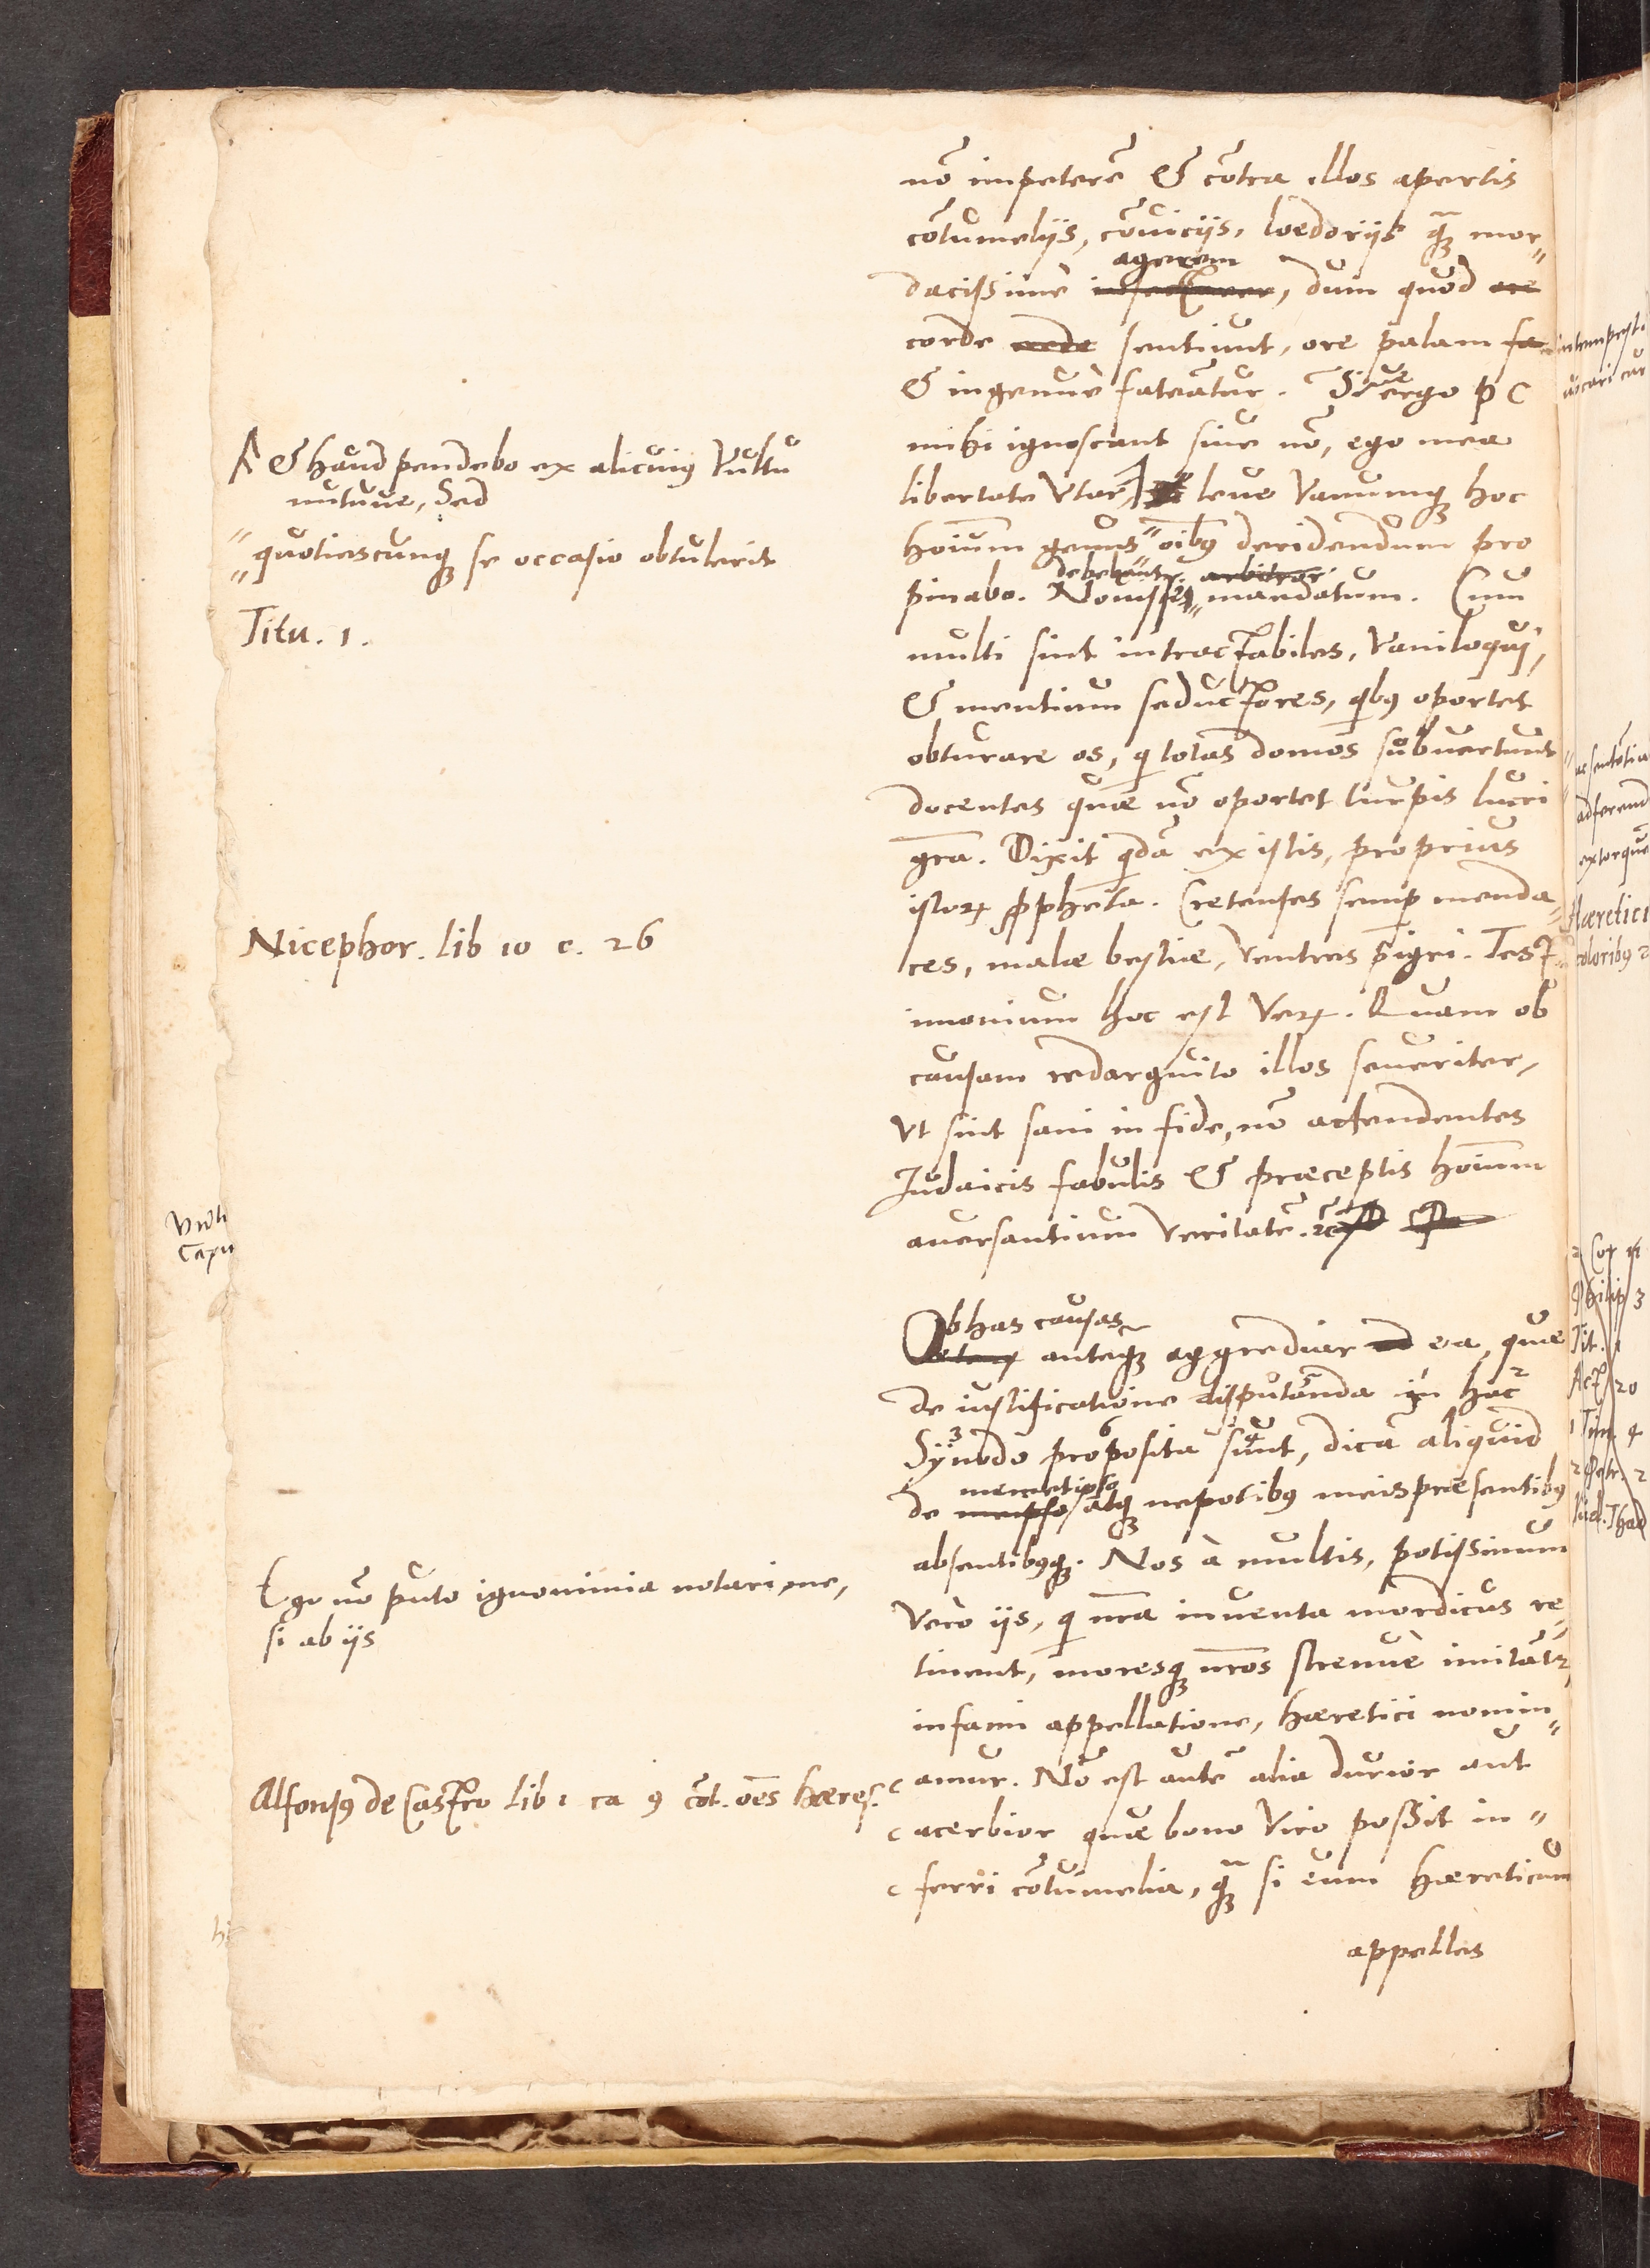 nō impeterē & cōtra illos apertis
cōtumeliis, cōuiciis, loedoriis q̃ꝫ mor〃
agerem
dacissime, dum quod ore
corde sentiunt, ore palam fa
& ingenuè fateātur. Siue ergo P C
mihi ignoscant siue nō, ego mea
libertate vtar, leue vanumqꝫ hoc
hoīum genus〃 oībꝰ deridendum pro
debebunt. arbitror
pinabo. mandatum. Cum
multi sint intractabiles, vaniloqui,
& mentium seductores, qͥbꝰ oportet
obturare os, qͥ totas domos subuertunt
docentes quæ nō oportet turpis lucri
gr̄a. Dixit qͥdā ex istis, proprius
istoꝝ ꝓpheta. Cretenses semꝑ menda〃
ces, malæ bestiæ, ventres pigri. Test
imonium hoc est veꝝ. Quam ob
causam redarguito illos seueriter,
vt sint sani in fide, nō attendentes
Iudaicis fabulis & præceptis hoīum
auersantium veritatē. &c̄
Ob has causas
anteqꝫ aggrediar ea, quæ
de iustificatione disputanda in hac
Synodo proposita sunt, dicā aliquid
memetipso
de meipso atqꝫ nepotibꝰ meis præsentibꝰ
absentibꝰqꝫ. Nos à multis, potissimum
vero iis, qͥ nr̄a inuenta mordicus re〃
tinent, moresqꝫ nr̄os strenuè imitātur,
infami appellatione, hæretici nomin〃
amur. Nō est autē alia durior aut
acerbior quæ bono viro possit in〃
ferri cōtumelia, q̃ꝫ si eum hæreticum
appelles
& haud pendebo ex alicuiꝰ vultu
nutuue, Sed
〃quotiescunqꝫ se occasio obtulerit
Titu. 1.
Nicephor. lib 10 c. 26
Ego nō puto ignominia notari me,
si ab iis
Alfonsꝰ de Castro lib 1 ca 9 cōt. oēs hæres.
intempesti
uocari cur
sentētia
adferend
extorque
Hæretici
coloribꝰ
2 Cor 11
Philip 3
Tit. 1
Act 20
1 Tim 4
2 Petr. 2
Iud. Thad